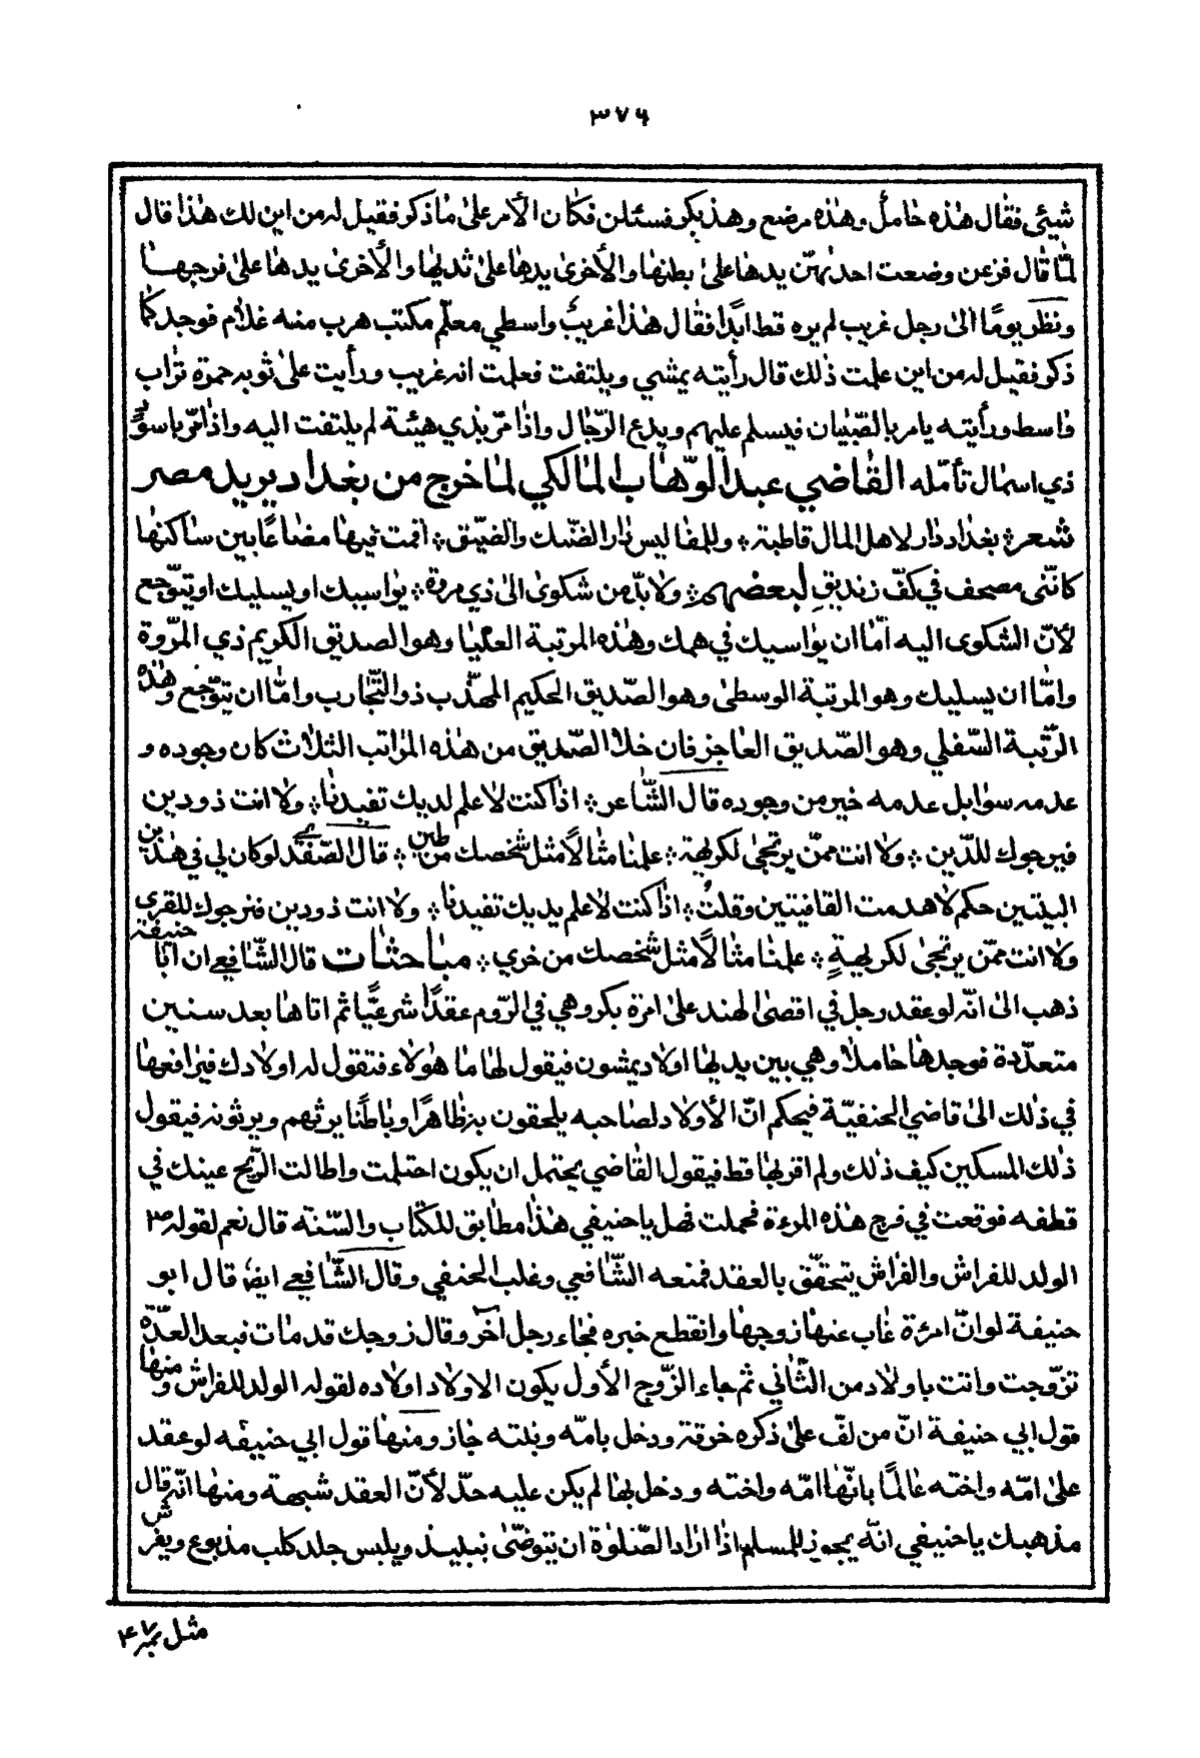 ٣٧٦
شيئ فقال هذه حامل وهذه مرضع وهذ بكر فسئلن فكان الأمر على ما ذكر فقيل له من اين لك هذا قال
لمّا قال فزعن وضعت احدٰيهنّ يدها على بطنها والأخرى يدها على ثديها والأخرى يدها على فرجها
ونظر يومًا الى رجل غريب لم يره قط ابدًا فقال هذا غريب واسطي معلّم مكتب هرب منه غلام فوجد كما
ذكر فقيل له من اين علمت ذلك قال رأيته يمشي ويلتفت فعلمت انه غريب ورأيت على ثوبه حمرة تراب
واسط ورأيته يامر بالصّبيان فيسلم عليهم ويدع الرّجال واذا مرّ بذي هيئة لم يلتفت اليه واذا مرّ باسود
ذي اسمال تأمّله القاضي عبد الوهّاب المالكي لما خرج من بغداد يريد مصر
شعر بغداد دار لاهل المال قاطبة وللمفاليس دار الضنك والضيّق اقمت فيها مضاعًا بين ساكنها
كانّني مصحف في كفّ زنديق لبعضهم ولا بدّ من شكوى الى ذي مروة يواسيك او يسليك او يتوّجع
لأنّ الشكوى اليه امّا ان يواسيك في همك وهذه المرتبة العليا وهو الصديق الكريم ذي المرّوة
وامّا ان يسليك وهو المرتبة الوسطى وهو الصّديق الحكيم المهذّب ذو التّجارب وامّا ان يتوّجع وهذه
الرّتبة السّفلي وهو الصّديق العاجز فان خلا الصّديق من هذه المراتب الثلاث كان وجوده و
عدمه سوا بل عدمه خير من وجوده قال الشّاعر اذا كنت لا علم لديك تفيدنا ولا انت ذو دين
فيرجوك للدّين ولا انت ممّن يرتجى لكريهة علمنا مثالًا مثل شخصك من طين قال الصّفدي لو كان لي في هذين
البيتين حكم لا هدمت القافيتين وقلت اذا كنت لا علم يديك تفيدنا ولا انت ذو دين فنرجوك للقرى
ولا انت ممّن يرتجى لكريهةٍ علمنا مثالًا مثل شخصك من خري مباحثات قال الشّافعي ان ابا حنيفة
ذهب الى انّه لو عقد رجل في اقصى الهند على امرة بكر وهي في الرّوم عقدًا شرعيًّا ثم اتاها بعد سنين
متعدّدة فوجدها حاملا وهي بين يديها اولاد يمشون فيقول لها ما هؤلاء فتقول له اولادك فيرافعها
في ذلك الى قاضي الحنفيّة فيحكم انّ الأولاد لصاحبه يلحقون به ظاهرًا وباطنًا يرثهم ويرثونه فيقول
ذلك المسكين كيف ذلك ولم اقربها قط فيقول القاضي يحتمل ان يكون احتلمت واطالت الرّيح عينك في
قطفه فوقعت في فرج هذه المرءة فحملت فهل يا حنيفي هذا مطابق للكتاب والسّنة قال نعم لقوله ص
الولد للفراش والفراش يتحقّق بالعقد فمنعه الشّافعي وغلب الحنفي وقال الشّافعي ايضا قال ابو
حنيفة لو انّ امرءة غاب عنها زوجها وانقطع خبره فجاء رجل آخر وقال زوجك قد مات فبعد العدّة
تزوّجت واتت باولاد من الثّاني ثم جاء الزّوج الأول يكون الاولاد اولاده لقوله الولد للفراش ومنها
قول ابي حنيفة انّ من لفّ على ذكره خرقة ودخل بامّه وبنته جاز ومنها قول ابي حنيفه لو عقد
على امّه واخته عالمًا بانّها امّه واخته ودخل بها لم يكن عليه حدّ لأنّ العقد شبهة ومنها انّه قال
مذهبك يا حنيفي انّه يجوز للمسلم اذا اراد الصّلوة ان يتوضّى نبيذ ويلبس جلد كلب مذبوع ويفرش
مثل نمبر ٤٧